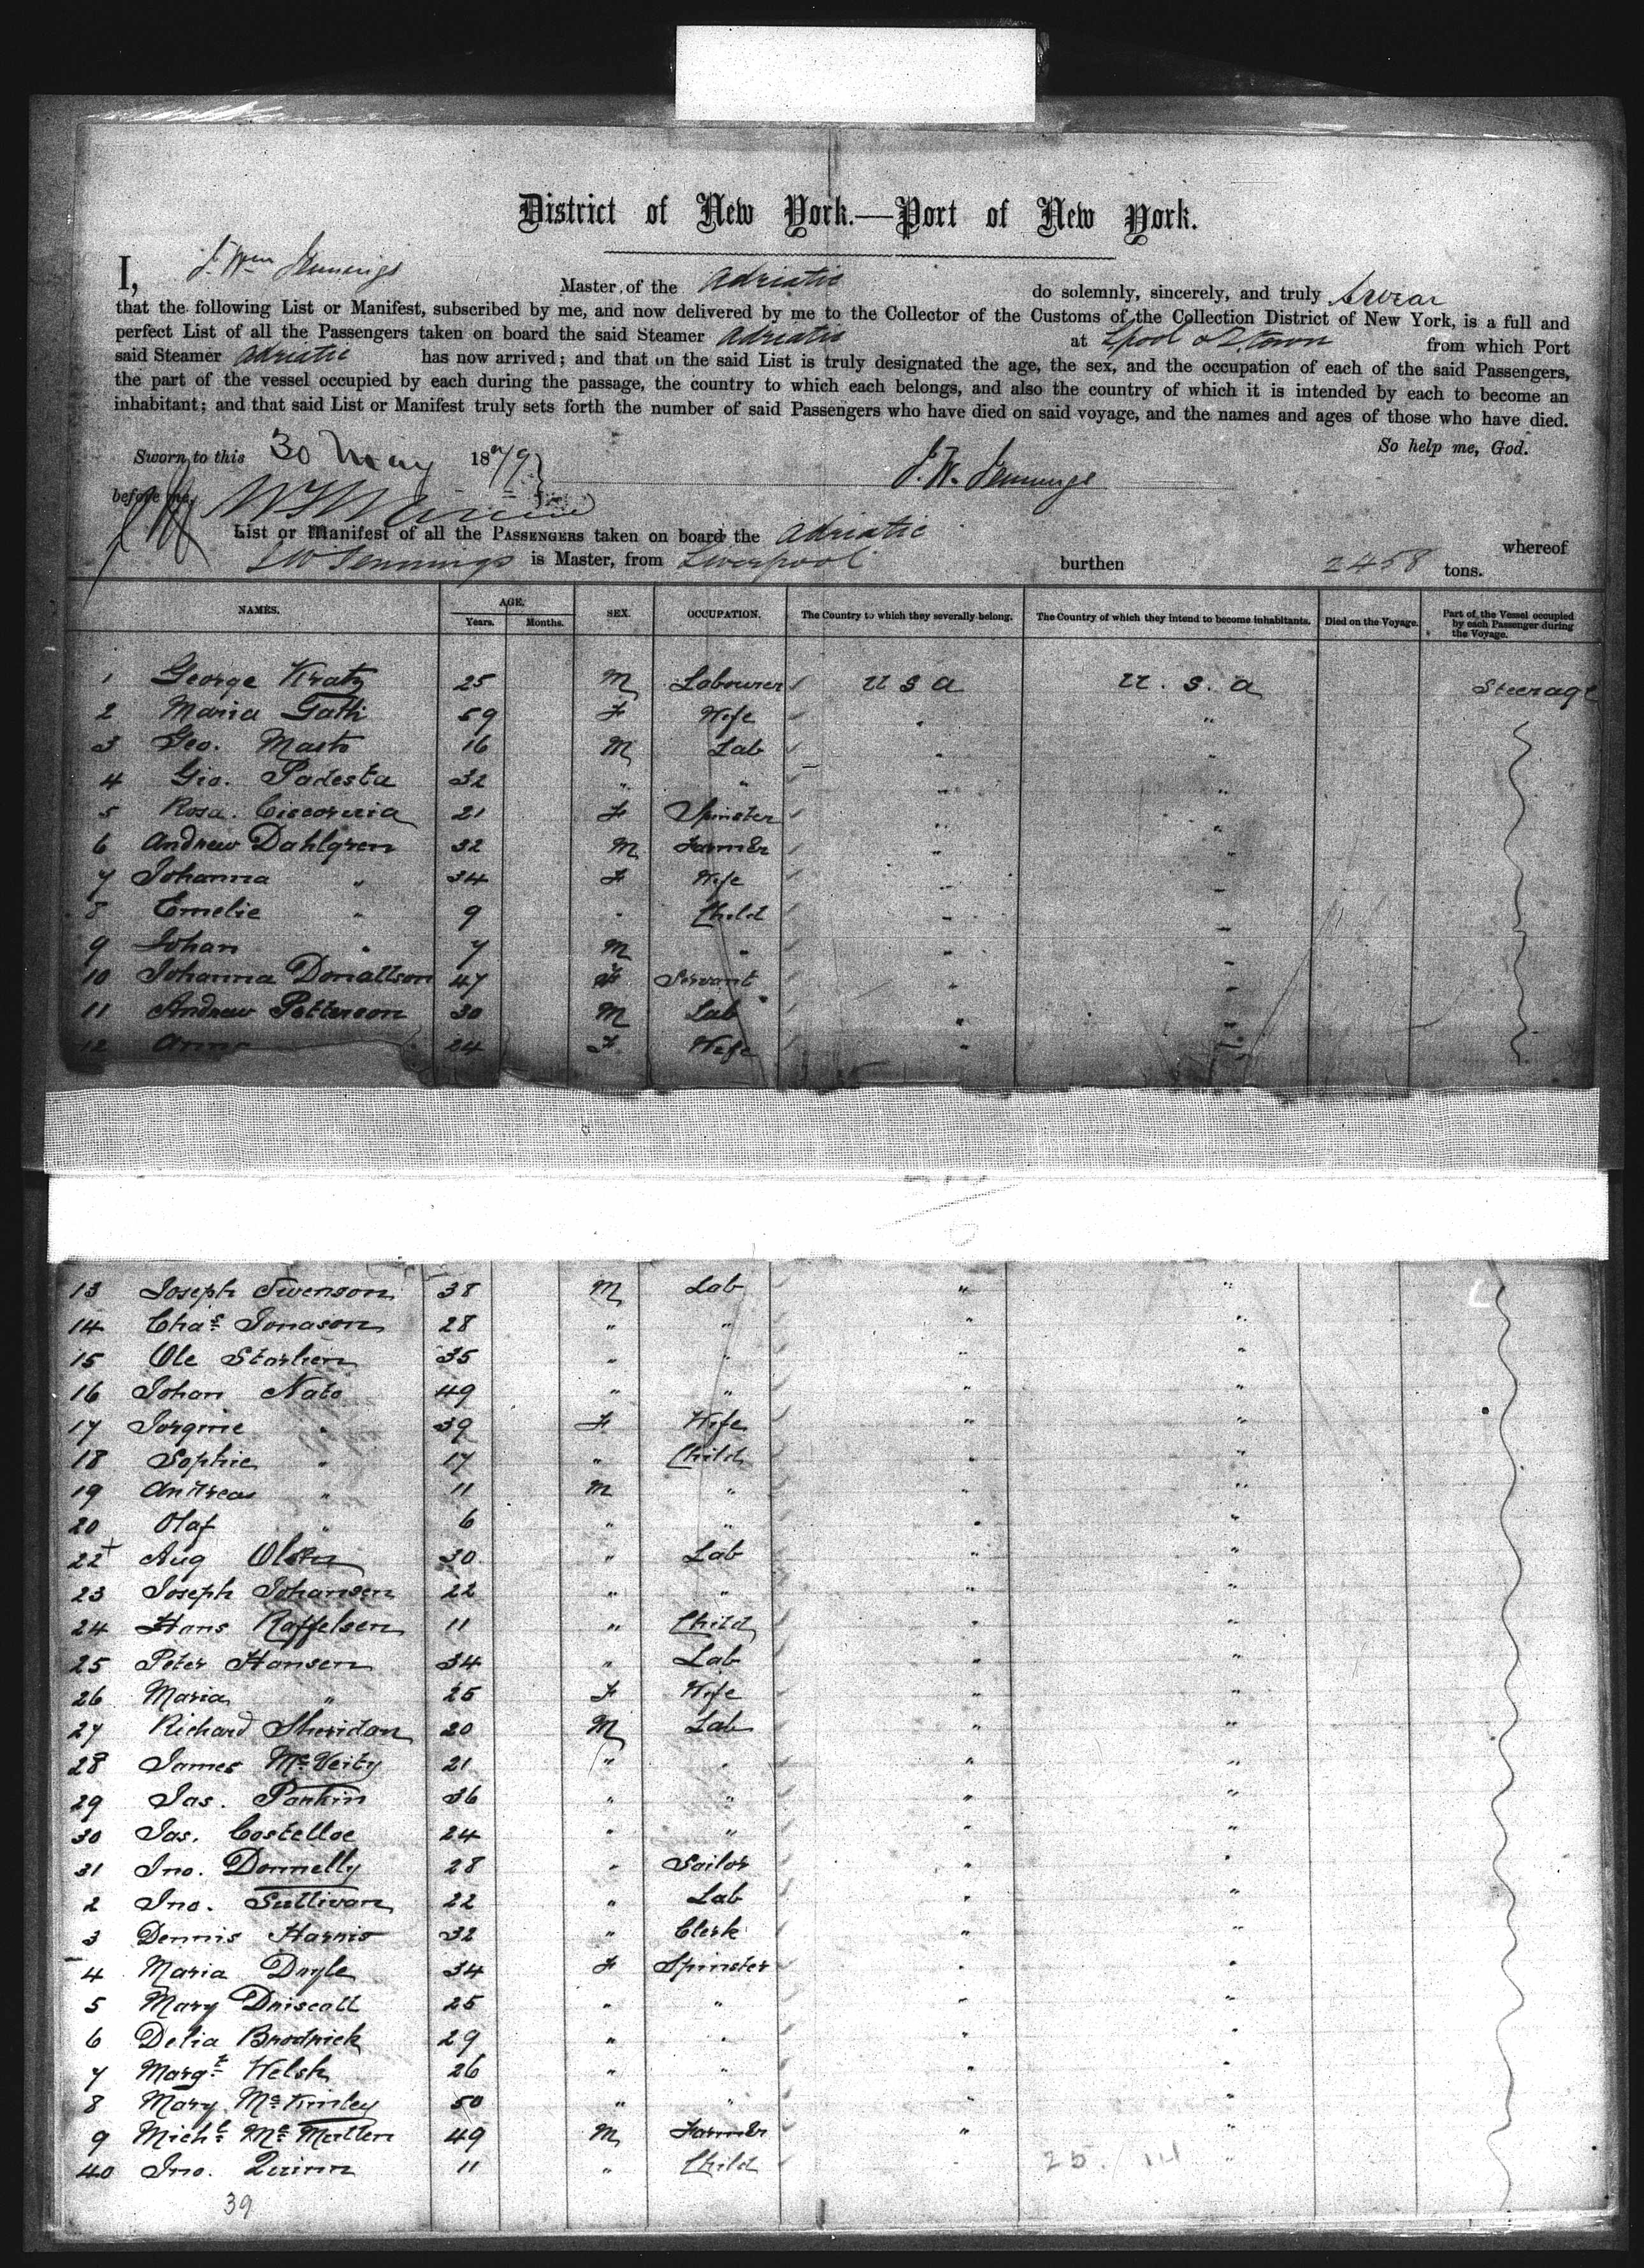 District of New York.—Port of New York.
I, J. Wm Jennings Master of the Adriatic do solemnly, sincerely, and truly Swear
that the following List or Manifest, subscribed by me, and now delivered by me to the Collector of the Customs of the Collection District of New York, is a full and
perfect List of all the Passengers taken on board the said Steamer Adriatic at Lpool & Q.Town from which Port
said Steamer Adriatic has now arrived; and that on the said List is truly designated the age, the sex, and the occupation of each of the said Passengers,
the part of the vessel occupied by each during the passage, the country to which each belongs, and also the country of which it is intended by each to become an
inhabitant; and that said List or Manifest truly sets forth the number of said Passengers who have died on said voyage, and the names and ages of those who have died.
So help me, God.
Sworn to this 30 May 1879
J. W. Jennings
before me,
List or Manifest of all the PASSENGERS taken on board the Adriatic whereof
J W Jennings is Master, from Liverpool burthen 2458 tons.
NAMES. AGE. Years. Months. SEX. OCCUPATION. The Country to which they severally belong. The Country of which they intend to become inhabitants. Died on the Voyage. Part of the Vessel occupied by each Passenger during the Voyage.
1 George Kratz 25 M Labourer U S A U. S. A Steerage
2 Maria Gatti 59 F Wife " "
3 Geo. Masto 16 M Lab " "
4 Gio. Padesta 32 " " " "
5 Rosa. 21 F Spinster " "
6 Andrew Dahlgren 32 M Farmer " "
7 Johanna " 34 F Wife " "
8 Emelie " 9 " Child " "
9 Johan " 7 M " " "
10 Johanna Donaltson 47 F Servant " "
11 Andrew Petterson 30 M Lab " "
12 Anna 24 F Wife " "
13 Joseph Swenson 38 M Lab " "
14 Chas Jonason 28 " " " "
15 Ole 35 " " " "
16 Johan Nato 49 " " " "
17 Jorgine " 39 F Wife " "
18 Sophie " 17 " Child " "
19 Andreas " 11 M " " "
20 Olaf " 6 " " " "
22 + Aug Olsen 30 " Lab " "
23 Joseph Johansen 22 " " " "
24 Hans Raffelsen 11 " Child " "
25 Peter Hansen 34 " Lab " "
26 Maria " 25 F Wife " "
27 Richard Sheridan 20 M Lab " "
28 James McVeity 21 " " " "
29 Jas. Parkin 36 " " " "
30 Jas. Costelloe 24 " " " "
31 Jno. Donnelly 28 " Sailor " "
2 Jno. Sullivan 22 " Lab " "
3 Dennis Harris 32 " Clerk " "
4 Maria Doyle 34 F Spinster " "
5 Mary Driscoll 25 " " " "
6 Delia Brodrick 29 " " " "
7 Margt Welsh 26 " " " "
8 Mary McKinley 50 " " " "
9 Michl McMullen 49 M Farmer " "
40 Jno. Quinn 11 " Child "
39